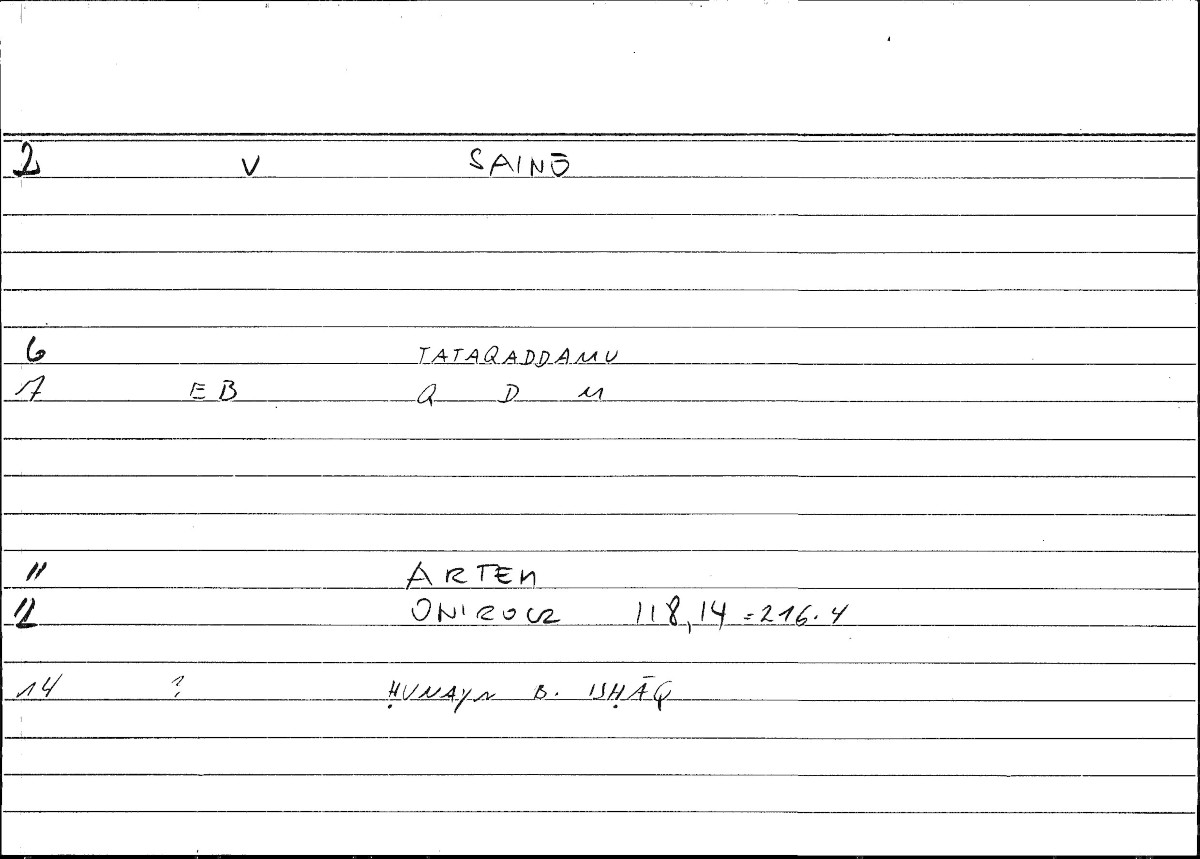 2 V SAINŌ
6 TATAQADDAMU
7 EB Q D M
11 ARTEM
12 ONIROCR 118,14 = 216.4
14 ? ḤUNAYN B. ISḤĀQ